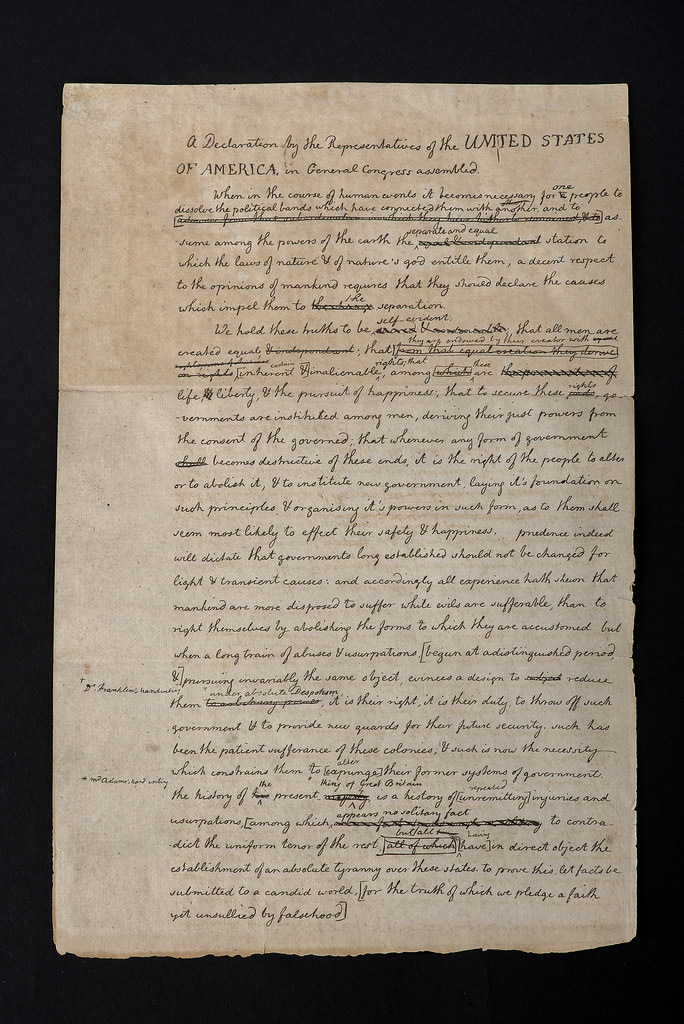 A Declaration by the Representatives of the UNITED STATES
OF AMERICA, in General Congress assembled.
one
When in the course of human events it becomes necessary for a people to
dissolve the political bands which have connected them with another, and to
[advance from that subordination in which they have hitherto remained, & to] as-
separate and equal
sume among the powers of the earth the equal & independant station to
which the laws of nature & of nature's god entitle them, a decent respect
to the opinions of mankind requires that they should declare the causes
the
which impel them to the change separation.
self-evident
We hold these truths to be sacred & undeniable; that all men are
they are endowed by their creator with
created equal & independant; that [from that equal creation they derive
certain rights; that these
in rights [inherent &] inalienable, among [which] are the preservation of
rights
life, & liberty, & the pursuit of happiness; that to secure these ends, go-
-vernments are instituted among men, deriving their just powers from
the consent of the governed; that whenever any form of government
shall becomes destructive of these ends, it is the right of the people to alter
or to abolish it, & to institute new government, laying it's foundation on
such principles, & organising it's powers in such form, as to them shall
seem most likely to effect their safety & happiness. prudence indeed
will dictate that governments long established should not be changed for
light & transient causes: and accordingly all experience hath shewn that
mankind are more disposed to suffer while evils are sufferable, than to
right themselves by abolishing the forms to which they are accustomed. but
when a long train of abuses & usurpations, [begun at a distinguished period
&] pursuing invariably the same object, evinces a design to subject reduce
† Dr. Franklin's handwriting
† under absolute Despotism
them to arbitrary power, it is their right, it is their duty, to throw off such
government & to provide new guards for their future security. such has
been the patient sufferance of these colonies; & such is now the necessity
alter
which constrains them to [expunge] their former systems of government.
* mr Adams's hand writing
the * king of Great Britain repeated
the history of his present majesty is a history of [unremitting] injuries and
appears no solitary fact
usurpations, [among which, to contra-
but all have
dict the uniform tenor of the rest, [all of which] [have] in direct object the
establishment of an absolute tyranny over these states. to prove this, let facts be
submitted to a candid world, [for the truth of which we pledge a faith
yet unsullied by falsehood]